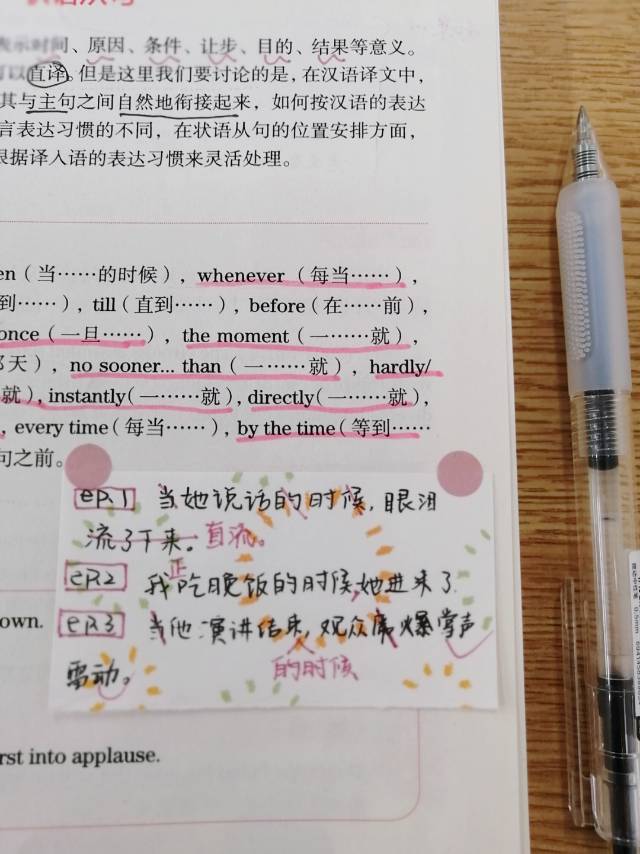 表示时间、原因、条件、让步、目的、结果等意义。
可以直译，但是这里我们要讨论的是，在汉语译文中，
其与主句之间自然地衔接起来，如何按汉语的表达
言表达习惯的不同，在状语从句的位置安排方面，
根据译入语的表达习惯来灵活处理。
en（当……的时候），whenever（每当……），
到……），till（直到……），before（在……前），
once（一旦……），the moment（一……就），
天），no sooner... than（一……就），hardly/
就），instantly（一……就），directly（一……就），
，every time（每当……），by the time（等到……
句之前。
ep.1 当她说话的时候，眼泪
流了下来。直流。
正
ep.2 我吃晚饭的时候，她进来了
own.
ep.3 当他演讲结束，观众席爆掌声
的时候
雷动。
rst into applause.